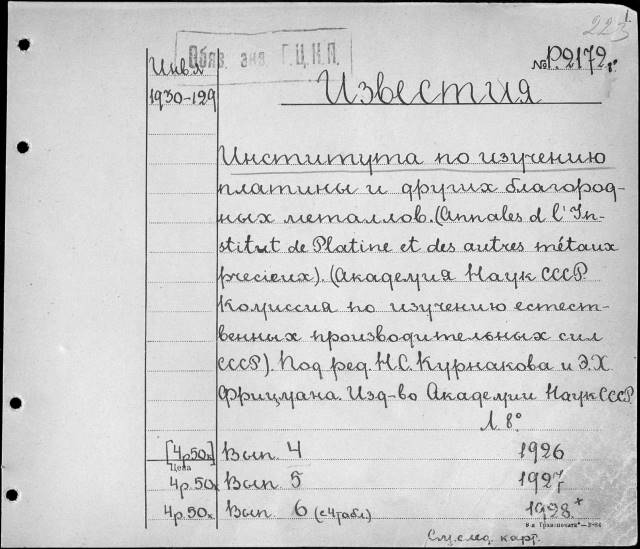 223
1.
Обяз. экз. Г.Ц.К.П.
Инв.
№ Р.2172 г.
1930-129
Известия
Института по изучению
платины и других благород-
ных металлов. (Annales d l'In-
stitut de Platine et des autres métaux
precieux). (Академия Наук СССР
Комиссия по изучению естест-
венных производительных сил
СССР). Под ред. Н.С. Курнакова и Э.Х.
Фрицмана. Изд-во Академии Наук СССР.
Л. 8°
[4р50к] Вып. 4 1926
Цена
4р.50к Вып. 5 1927
4р.50к Вып. 6 (с 4 табл) 1928+
См. след. карт.